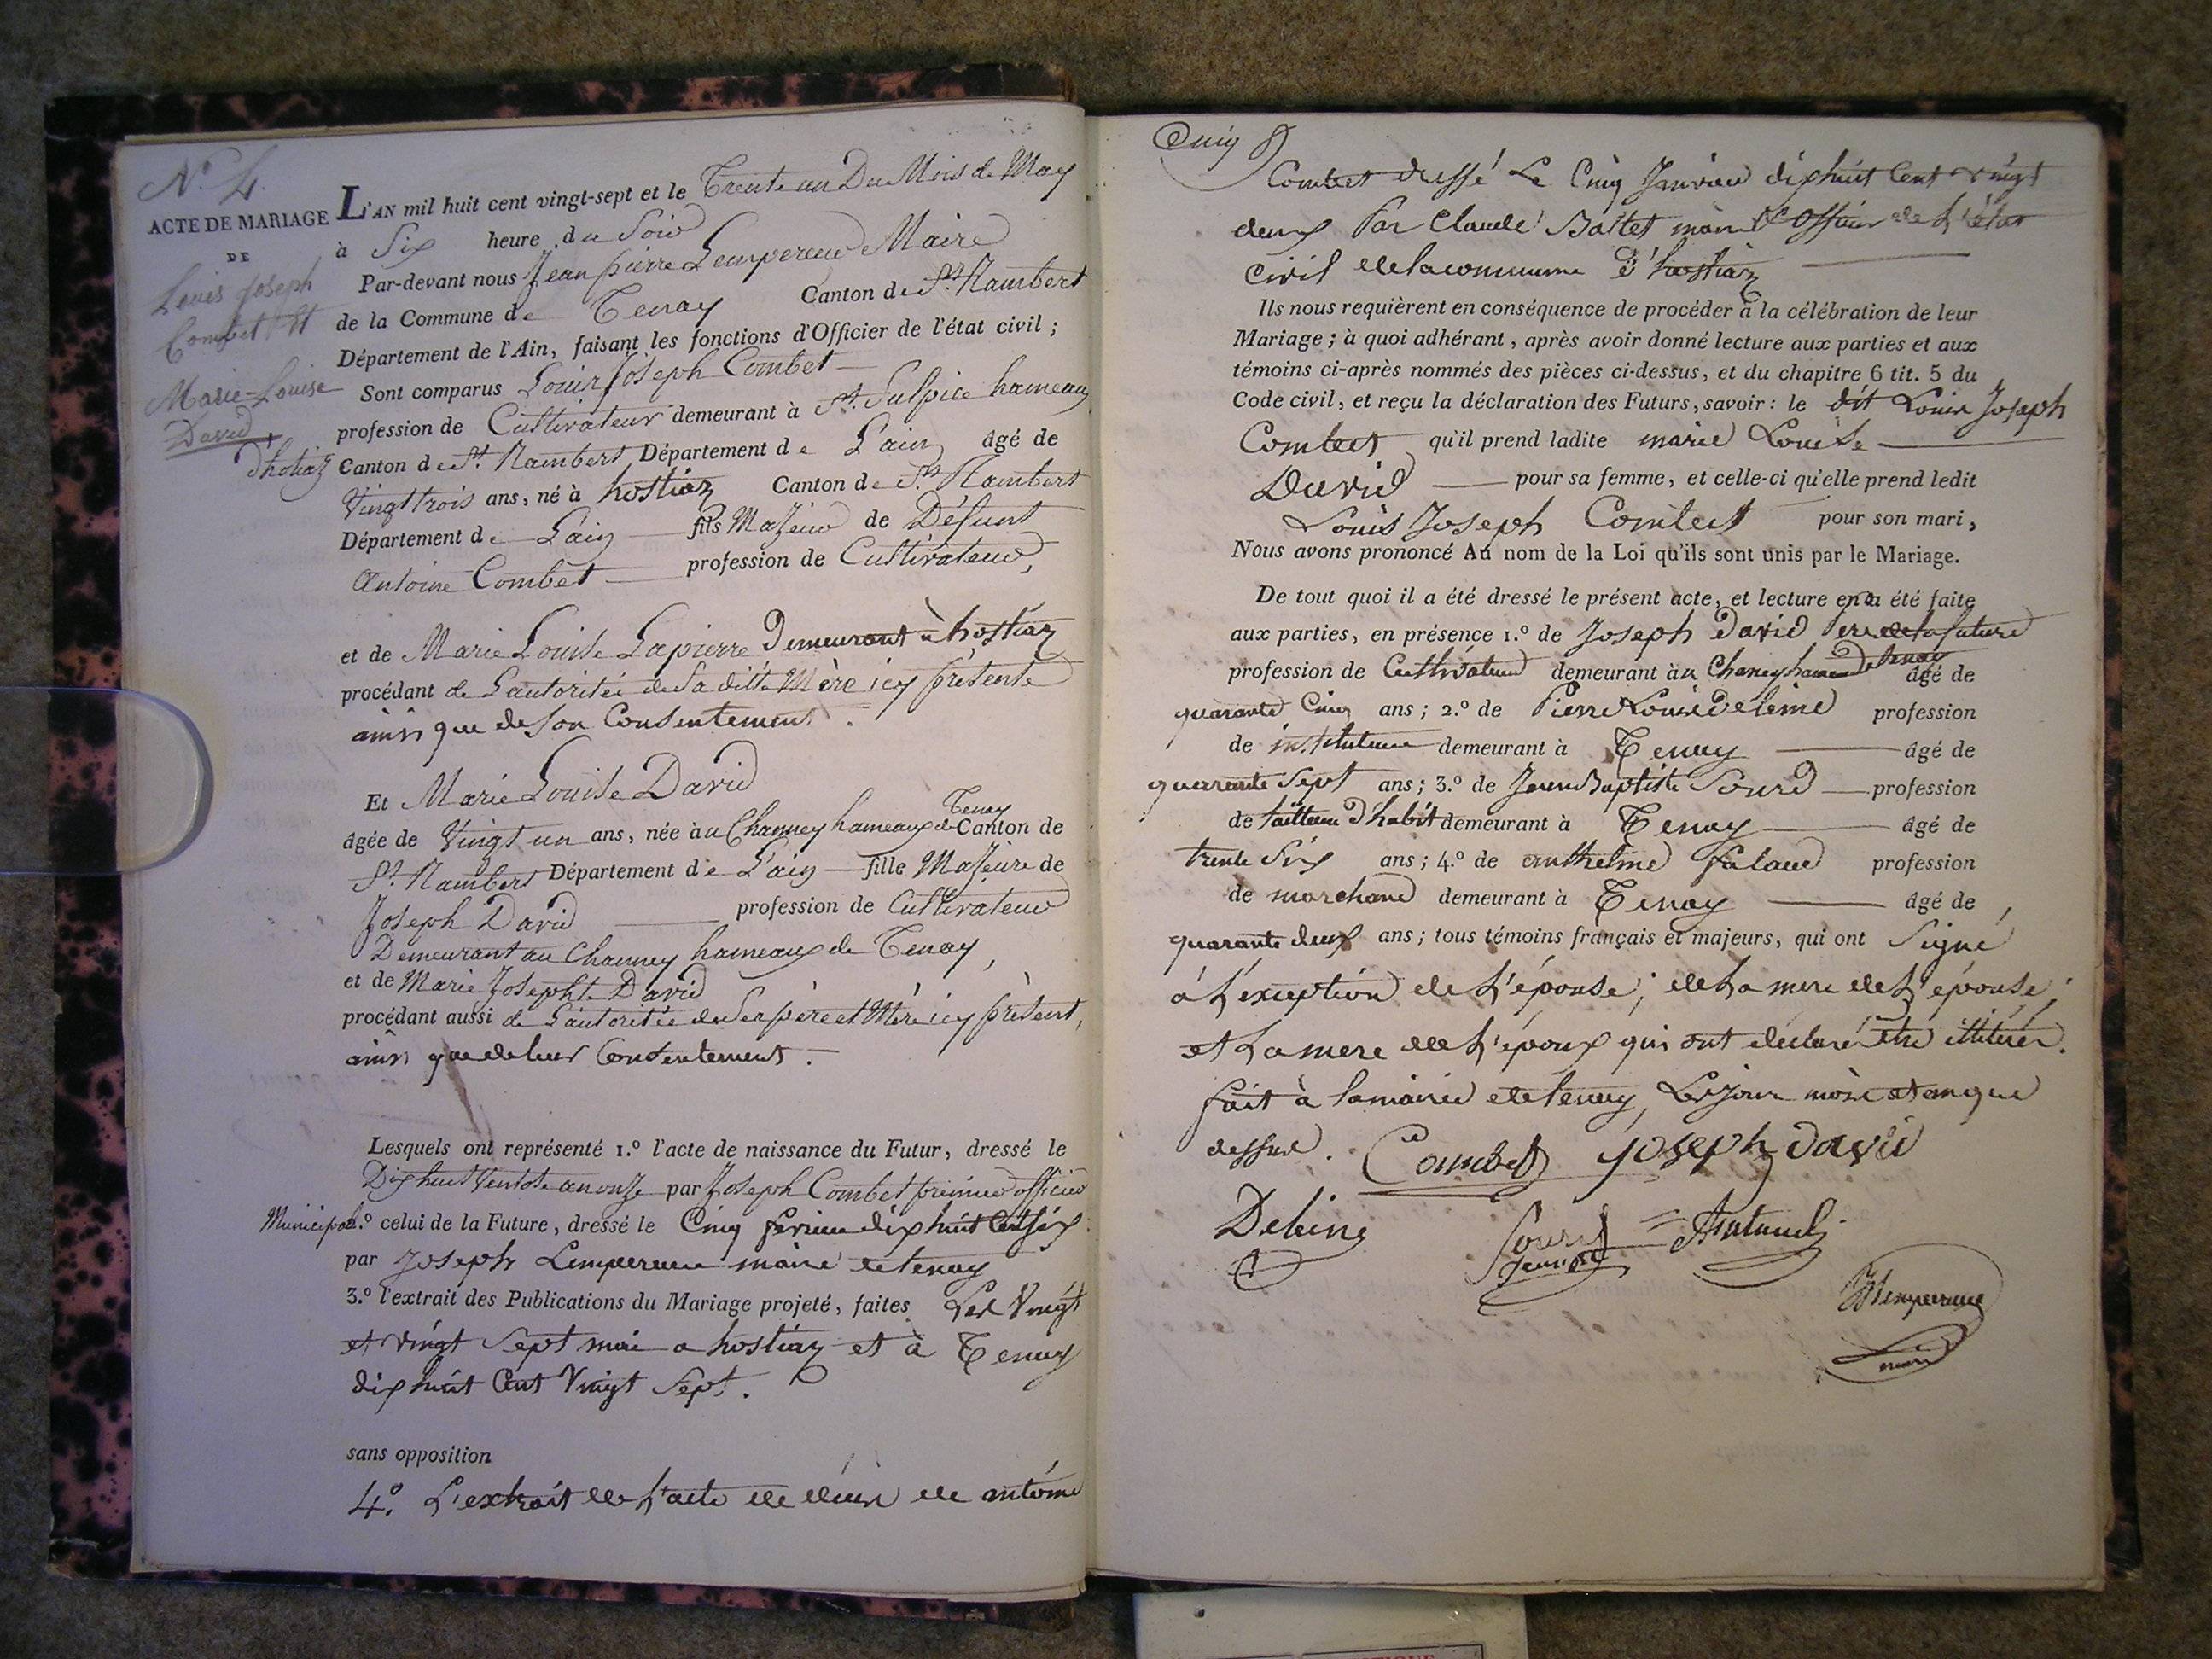 N.º 4.
ACTE DE MARIAGE
DE
Louis Joseph
Combet Et
Marie-Louise
David
d'hotiaz
L'AN mil huit cent vingt-sept et le Trente un Du Mois de May
à Six heure du Soir
Par-devant nous Jean pierre Lempereur Maire
de la Commune de Tenay Canton de St. Rambert
Département de l'Ain, faisant les fonctions d'Officier de l'état civil ;
Sont comparus Louis Joseph Combet
profession de Cultivateur demeurant à St. Sulpice hameau
Canton de St. Rambert Département de L'ain âgé de
Vingt trois ans, né à hostiaz Canton de St. Rambert
Département de L'ain fils Majeur de Défunt
Antoine Combet profession de Cultivateur,
et de Marie Louise Lapierre Demeurant à hostiaz
procédant de L'autoritée de Sa ditte Mère icy présente
ainsi que de son Consentement.
Et Marie Louise David
Tenay
âgée de Vingt un ans, née au Channey hameaux de Canton de
St. Rambert Département de L'ain fille Majeure de
Joseph David profession de Cultivateur
Demeurant au Channey hameaux de Tenay,
et de Marie Josephte David
procédant aussi de L'autoritée de Ses père et Mère icy présent,
ainsi que de leur Consentement.
Lesquels ont représenté 1.º l'acte de naissance du Futur, dressé le
Dix huit Ventose an onze par Joseph Combet premier officier
Municipal 2.º celui de la Future, dressé le Cinq février dix huit Cent six
par Joseph Lempereur maire de tenay
3.º l'extrait des Publications du Mariage projeté, faites Les Vingt
et vingt Sept mai a hostiaz et à Tenay
dix huit Cent Vingt Sept.
sans opposition
4.º L'extrait de L'acte de décès de antoine
Cinq
Combet dressé Le Cinq Janvier dixhuit Cent vingt
deux Par Claude Battet maire Officier de L'état
Civil de la commune d'hostiaz
Ils nous requièrent en conséquence de procéder à la célébration de leur
Mariage ; à quoi adhérant, après avoir donné lecture aux parties et aux
témoins ci-après nommés des pièces ci-dessus, et du chapitre 6 tit. 5 du
Code civil, et reçu la déclaration des Futurs, savoir : le dit Louis Joseph
Combet qu'il prend ladite marie Louise
David pour sa femme, et celle-ci qu'elle prend ledit
Louis Joseph Combet pour son mari,
Nous avons prononcé Au nom de la Loi qu'ils sont unis par le Mariage.
De tout quoi il a été dressé le présent acte, et lecture en a été faite
aux parties, en présence 1.º de Joseph David Pere de la future
profession de Cultivateur demeurant à u Chaney hameau de tenay âgé de
quarante Cinq ans ; 2.º de Pierre Louis profession
de instituteur demeurant à Tenay âgé de
quarante Sept ans ; 3.º de Jean Baptiste Sourd profession
de tailleur d'habit demeurant à Tenay âgé de
trente Six ans ; 4.º de anthelme profession
de marchand demeurant à Tenay âgé de
quarante deux ans ; tous témoins français et majeurs, qui ont Signé
à L'exception de L'épouse ; de La mere de L'épouse ;
et La mere de L'époux qui ont déclaré être illitéré.
fait à la mairie de tenay, Les jour mois et an que
dessus. Combet Joseph david
Sourd
Lempereur
maire